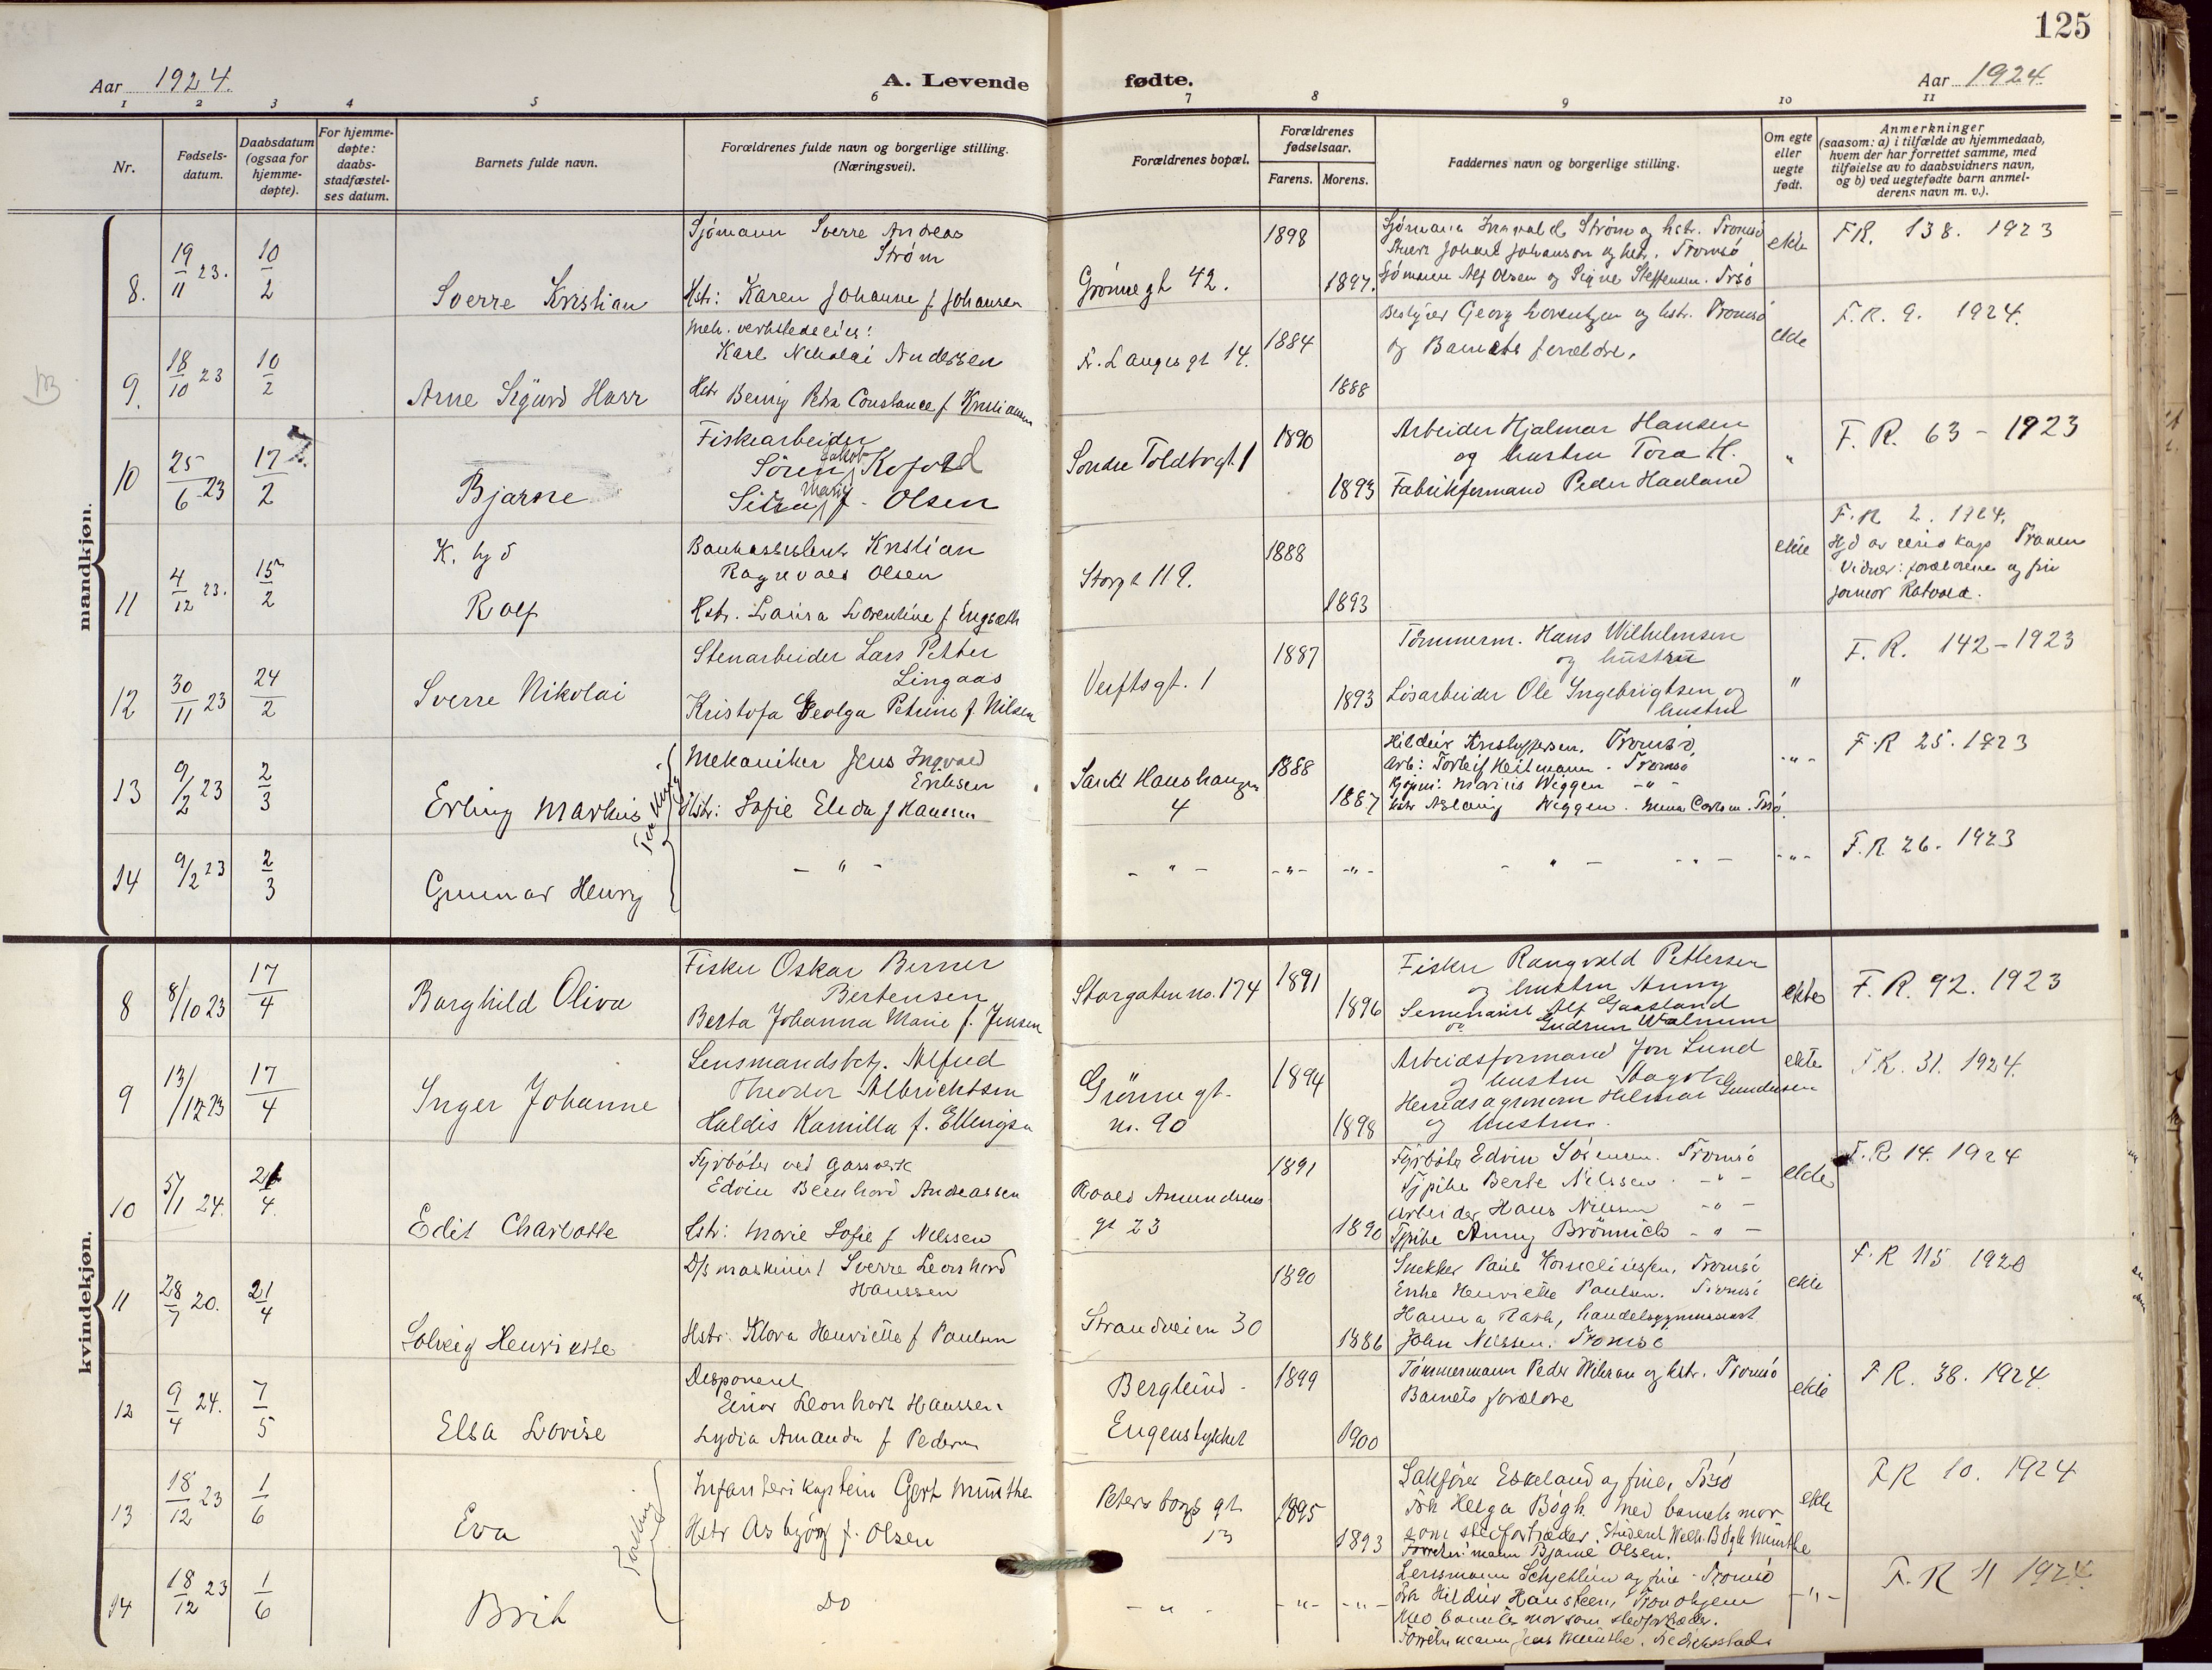 125
Aar 1924.
A. Levende fødte.
Aar 1924
1 2 3 4 5 6 7 8 9 10 11
Nr.
Fødsels-
datum.
Daabsdatum
(ogsaa for
hjemme-
døpte).
For hjemme-
døpte:
daabs-
stadfæstel-
ses datum.
Barnets fulde navn.
Forældrenes fulde navn og borgerlige stilling.
(Næringsvei).
Forældrenes bopæl.
Forældrenes
fødselsaar.
Farens. Morens.
Faddernes navn og borgerlige stilling.
Om egte
eller
uegte
født.
Anmerkninger
(saasom: a) i tilfælde av hjemmedaab,
hvem der har forrettet samme, med
tilføielse av to daabsvidners navn,
og b) ved uegtefødte barn anmel-
derens navn m. v.).
mandkjøn.
8. 19/11 23. 10/2
Sverre Kristian
Sjømann Sverre Andreas
Strøm
Hstr: Karen Johanne f Johansen
Grønnegt 42.
1898
1897.
Sjømann Ingvald Strøm og hstr. Tromsø
Johansen og hstr. Tromsø
Sjømann Alf Olsen og Signe Steffensen. Trsø
ekte
F.R. 138. 1923
9. 18/10 23 10/2
Arne Sigurd Harr
Mek. verkstedeier:
Karl Nikolai Andersen
Hstr Benny Petra Constance f Kristiansen
Fr. Langes gt 14.
1884
1888
Bestyrer Georg Lorentzen og hstr. Tromsø
og Barnets forældre.
ekte
F.R. 9. 1924.
10 25/6 23 17/2
Bjarne
Fiskearbeider
Søren Jakob Kofoed
Sina Marie f. Olsen
Sondre Toldbodgt. 1
1890
1893
Arbeider Hjalmar Hansen
og hustru Tora H.
Fabrikformand Peder Haaland
"
F. R. 63 - 1923
11 4/12 23. 15/2
K. hjd
Rolf
Bankassistent Kristian
Ragnvald Olsen
Hstr. Laura Lorentine f Engsæth
Storgt 119.
1888
1893
ekte
F.R 2. 1924.
Hjd av resid kap Tranem
Vidner: forældrene og
12 30/11 23 24/2
Sverre Nikolai
Stenarbeider Lars Petter
Lingaas
Kristofa Georga Petrine f. Nilsen
Verftsgt. 1
1887
1893
Tømmerm. Hans Wilhelmsen
og hustru
Løsarbeider Ole Ingebrigtsen og
hustru
"
F. R. 142 - 1923
13 9/2 23 2/3
Erling Markus
Mekaniker Jens Ingvald
Eriksen
Hstr: Sofie Elida f Hanssen
Sankt Hanshaugen
4
1888
1887
Hildur Kristoffersen. Tromsø,
Arb: Torleif Heitmann. Tromsø
Kjøpm: Marius Wiggen - " -
Hstr Aslaug Wiggen.
- " -
F.R 25. 1923
14 9/2 23 2/3
Gunnar Henry
- " -
- " -
- " - - " -
- " - - " -
- " -
F.R. 26. 1923
kvindekjøn.
8 8/10 23 17/4
Borghild Oliva
Fisker Oskar Berner
Bertensen
Berta Johanna Marie f. Jensen
Storgaten no. 174
1891
1896
Fisker Rangvald Pettersen
og hustru Anny
Seminarist Alf Gaasland
og Gudrun Walnum
ekte
F. R. 92. 1923
9 13/12 23 17/4
Inger Johanne
Lensmandsbetj. Alfred
Theodor Albrichtsen
Haldis Kamilla f. Ellingsen
Grønnegt.
no. 90
1894
1898
Arbeidsformand Jon Lund
og hustru
Herredsagronom Hilmar Gundersen
og hustru.
ekte
F.R. 31. 1924.
10 5/1 24. 21/4
Edit Charlotte
Fyrbøter ved gassverk
Edvin Bernhard Andreassen
Hstr: Marie Sofie f Nilssen
Roald Amundsens
gt 23
1891
1890
Fyrbøter Edvin Sørensen. Tromsø
Tjpike Berte Nilssen. - " -
Arbeider Hans Nilssen - " -
Tjpike Anny Brønnich - " -
ekte
F.R 14. 1924
11 28/7 20. 21/4
Solveig Henriette
D/s maskinist Sverre Leonhard
Hanssen
Hstr: Klara Henriette f Paulsen
Strandveien 30
1890
1886
Snekker Paul Korneliussen, Tromsø
Enke Henriette Paulsen. Tromsø
Hanna Rask, handelsgymnasiast
John Nilssen. Tromsø
ekte
F. R 115 1920
12 9/4 24. 7/5
Elsa Lovise
Disponent
Einar Leonhart Hanssen
Lydia Amanda f Pedersen
Berglund -
Eugenstykket
1899
1900
Tømmermann Peder Nilssen og hstr. Tromsø
Barnets forældre
ekte
F R. 38. 1924
13 18/12 23 1/6
Eva
Tvilling
Infanterikaptein Gert Munthe
Hstr Asbjørg f. Olsen
Petersborgs gt
13
1895
1893
Sakfører Eskeland og frue, Trsø
Frk Helga Bøgh med barnets mor
som stedfortræder. Student Wilh. Bøgh Munthe
Bjarne Olsen.
ekte
F.R 10. 1924
14 18/12 23 1/6
Brit
Do
- " -
- " - - " -
Lensmann Schjetlein og frue. Tromsø
Frk Hildur Hansteen, Trondhjem
Med barnets mor som stedfortræder.
Jens Munthe. Fredrikstad.
- " -
F. R 11 1924.